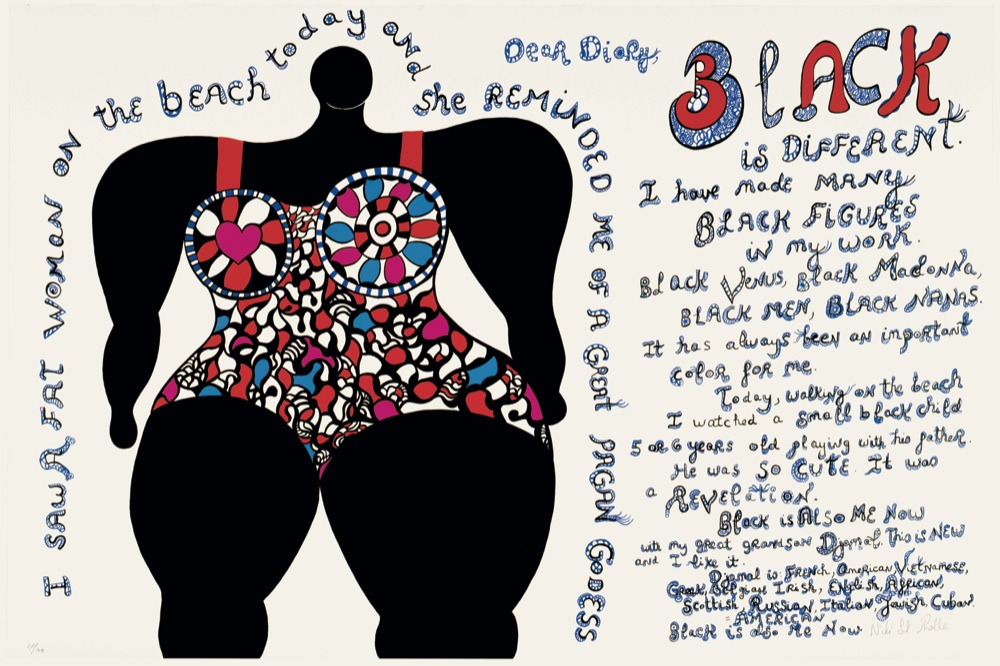 I SAW A FAT WOMAN ON the BEACH today AND she REMINDED ME OF A GREAT PAGAN GODESS
Dear Diary,
BLACK
is DIFFERENT.
I have made MANY
BLACK FIGURES
in my WORK.
BLACK VENUS, BLACK MADONNA,
BLACK MEN, BLACK NANAS.
It has always been an important
color for me.
Today, walking on the beach
I watched a small black child
5 OR 6 years old playing with his father.
He was SO CUTE. It was
a REVELATION.
Black is ALSO ME NOW
with my great grandson Djamal. This is NEW
and I like it.
Djamal is: FRENCH, American Vietnamese,
Greek, Belgian, Irish, English, African,
Scottish, Russian, Italian, Jewish, Cuban.
AMERICAN
Black is also Me Now